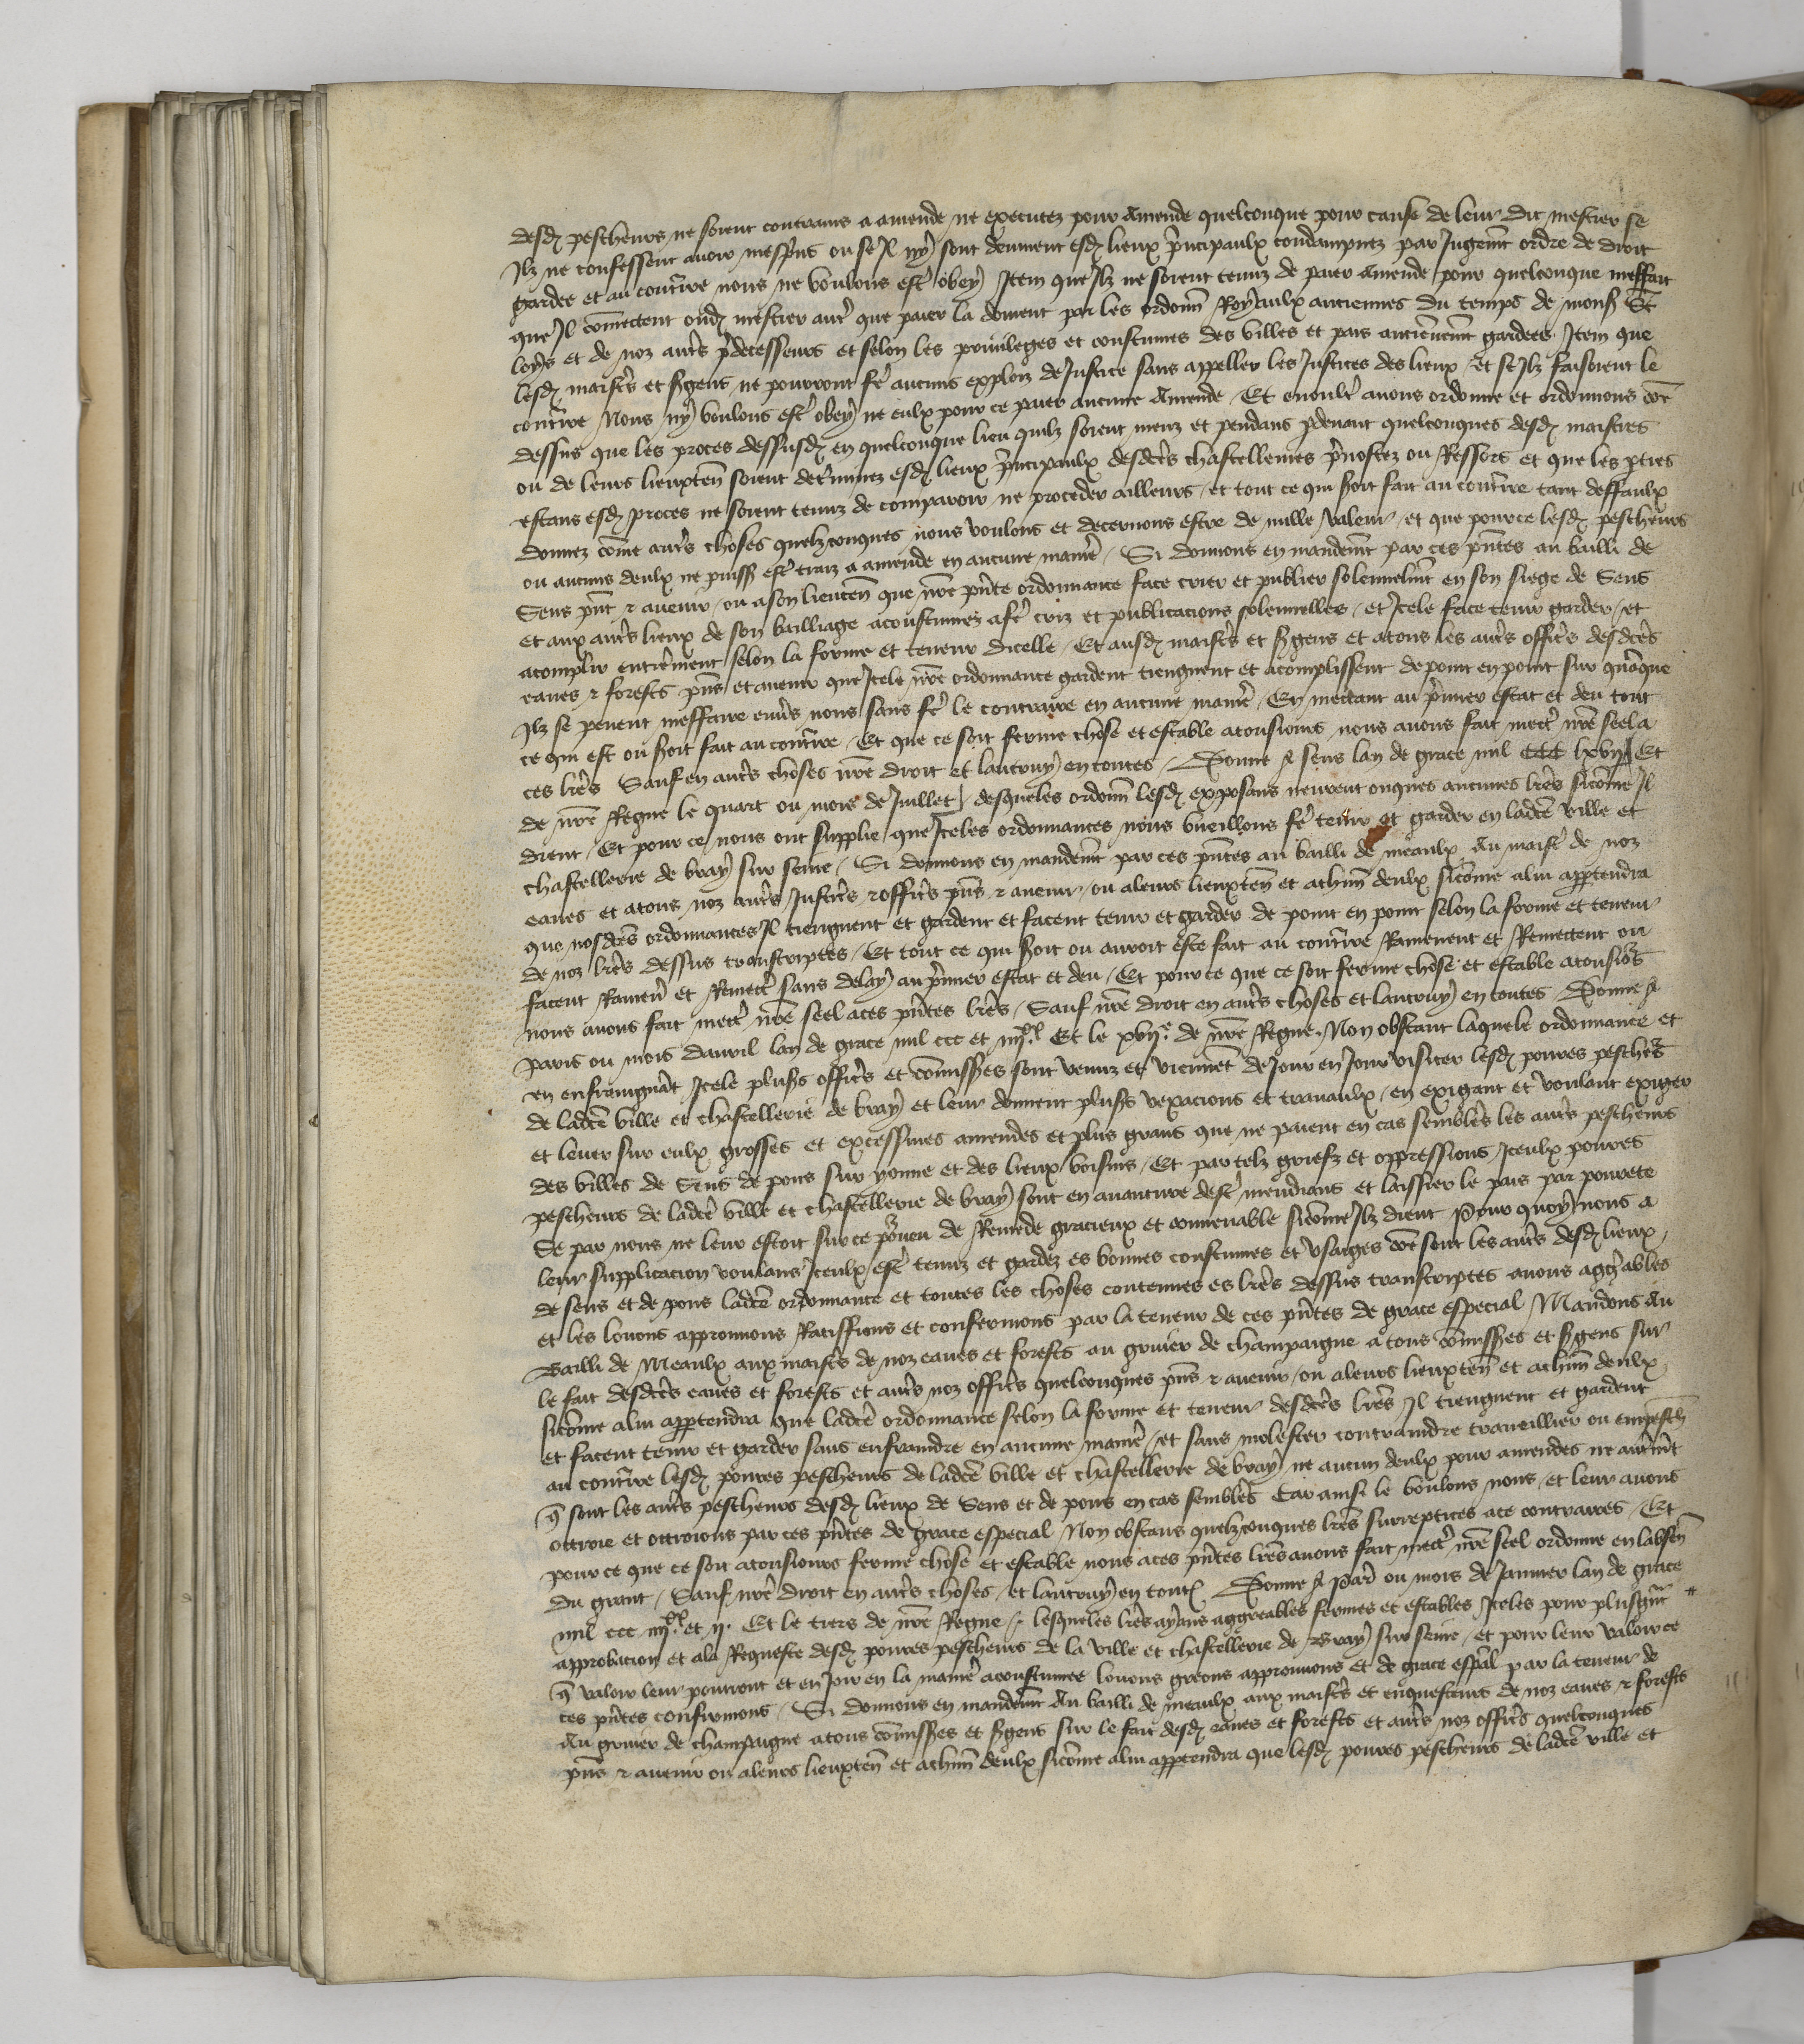 desd pescheurs ne soient contrains a amende ne executez pour Amende quelconque pour cause de leur dit mestier se
Ilz ne confessent auoir mespris ou se Il ny sont deument esd lieux principaulx condampnez par Jugemt ordre de droit
gardee et au contrre nous ne voulons estre obey Item que Ilz ne soient tenuz de paier Amende pour quelconque meffait
que Il comectent oud mestier autre que paier la doiuent par les ordonn Royaulx anciennes du temps de mons St
Loys et de noz autrs predecesseurs et selon les priuileges et coustumes des villes et pais anciennemt gardees Item que
lesd maistrs et sgens ne pourront fe aucuns exploiz de Justice sans appeller les Justices des lieux / et se Ilz faisoient le
contrre Nous ny voulons estre obey ne eulx pour ce paier aucune Amende / Et enoultre auons ordonne et ordonnons come
dessus que les proces dessusd en quelconque lieu quilz soient menz et pendans pdeuant quelconques desd maistres
ou de leurs lieuxten soient determinez esd lieux principaulx desdces chastellenies preuostez ou Ressors et que les pties
estans esd proces ne soient tenuz de comparoir ne proceder ailleurs / et tout ce qui soit fait au contrre tant deffaulx
donnez come autrs choses quelzconques nous voulons et decernons estre de nulle valeur / et que pource lesd pescheurs
ou aucuns deulx ne puiss estre traiz a amende en aucune manie / Si donnons en mandemt par ces pntes au bailli de
Sens pnt & auenir / ou a son lieuten que nre pnte ordonnance face crier et publier solennelmt en son siege de Sens
et aux autrs lieux de son bailliage acoustumez a fe criz et publicacions solennelles / et Icele face tenir garder / et
acomplir entierement selon la forme et teneur dicelle / Et ausd maistrs et sgens et atous les autrs officrs desdces
eaues & forests pns et auenir que Icele nre ordonnance gardent tiengnent et acomplissent de point en point sur quanque
Ilz se peuent meffaire enurs nous sans fe le contraire en aucune manie / En mettant au premier estat et deu tout
ce qui est ou soit fait au contrre / Et que ce soit ferme chose et estable atousiours nous auons fait mectre nre seel a
ces lres Sauf en autrs choses nre droit et lautruy en toutes / Donne A sens lan de grace mil CCC lxvii Et
de nre Regne le quart ou mois de Juillet / desqueles ordonn lesd exposans neurent onques aucunes lres sicome Il
dient / Et pour ce nous ont supplie que Iceles ordonnances nous vueillons fe tenir et garder en ladce ville et
chastellerie de bray sur seine / Si donnons en mandemt par ces pntes au bailli de meaulx Au maistre de noz
eaues et atous noz autrs Justicrs & officrs pns & auenir / ou aleurs lieuxten et achun deulx sicome alui appartendra
que nosdces ordonnances Il tiengnent et gardent et facent tenir et garder de point en point selon la forme et teneur
de noz lres dessus transcriptes / Et tout ce qui soit ou auroit este fait au contrre Ramenent et Remectent ou
facent Ramener et Remectre sans delay au premier estat et deu / Et pour ce que ce soit ferme chose et estable atousiors
nous auons fait mectre nre seel a ces pntes lres / Sauf nre droit en autrs choses et lautruy en toutes Donne A
Paris ou mois dauril lan de grace mil ccc et iiijxx Et le xvije de nre Regne. Non obstant laquele ordonnance et
en enfraingnant Icele plusrs officrs et comissres sont venuz et viennent de Jour en Jour visiter lesd poures peschers
de ladce ville et chastellerie de bray et leur donnent plusrs vexacions et trauaulx / en exigant et voulant exiger
et leuer sur eulx grosses et excessiues amendes et plus grans que ne paient en cas semblees les autrs pescheurs
des villes de Sens de pons sur yonne et des lieux voisins / Et par telz griefz et oppressions Iceulx poures
pescheurs de ladce ville et chastellerie de bray sont en auanture destre mendians et laissier le pais par pourete
Se par nous ne leur estoit sur ce pourueu de Remede gracieux et conuenable sicome Ilz dient Pour quoy nous a
leur supplicacion voulans Iceulx estre tenuz et gardez es bonnes coustumes et vsaiges come sont les autrs desd lieux
de sens et de pons ladce ordonnance et toutes les choses contenues es lres dessus transcriptes auons agreables
et les louons approuuons Ratiffions et confermons par la teneur de ces pntes de grace especial Mandons Au
Bailli de Meaulx aux maistrs de noz eaues et forests au gruier de champaigne a tous comissres et sgens sur
le fait desdces eaues et forests et autrs noz officrs quelconques pns & auenir / ou aleurs lieuxten et achun deulx
sicome alui appartendra que ladce ordonnance selon la forme et teneur desdces lres Il tiengnent et gardent
et facent tenir et garder sans enfraindre en aucune manie / et sans molester contraindre traueillier ou empesch
au contrre lesd poures pescheurs de ladce ville et chastellerie de bray ne aucun deulx pour amendes ne autrmt
que sont les autrs pescheurs desd lieux de Sens et de pons en cas sembles Car ainsi le voulons nous / et leur auons
ottroie et ottroions par ces pntes de grace especial Non obstans quelzconques lres surreptices ace contraires / Et
pour ce que ce soit atousiours ferme chose et estable nous a ces pntes lres auons fait mectre nre seel ordonne en labsen
du grant / Sauf nre droit en autrs choses / et lautruy en tout Donne A Paris ou mois de Januier lan de grace
mil ccc iiijxx et ij. Et le tiers de nre Regne / lesqueles lres ayans aggreables fermes et estables Iceles pour plusgrant
approbacion et ala Requeste desd poures pescheurs de la ville et chastellerie de Bray sur seine / et pour leur valoir ce
que valoir leur pourront et en Joir en la manie acoustumee louons greons approuuons et de grace espal par la teneur de
ces pntes confirmons / Si donnons en mandemt Au bailli de meaulx aux maistrs et enquesteurs de noz eaues & forests
Au gruier de champaigne atous comissres et sgens sur le fait desd eaues et forests et autrs noz officrs quelconques
pns & auenir ou aleurs lieuxten et achun deulx sicome alui appartendra que lesd poures pescheurs de ladce ville et